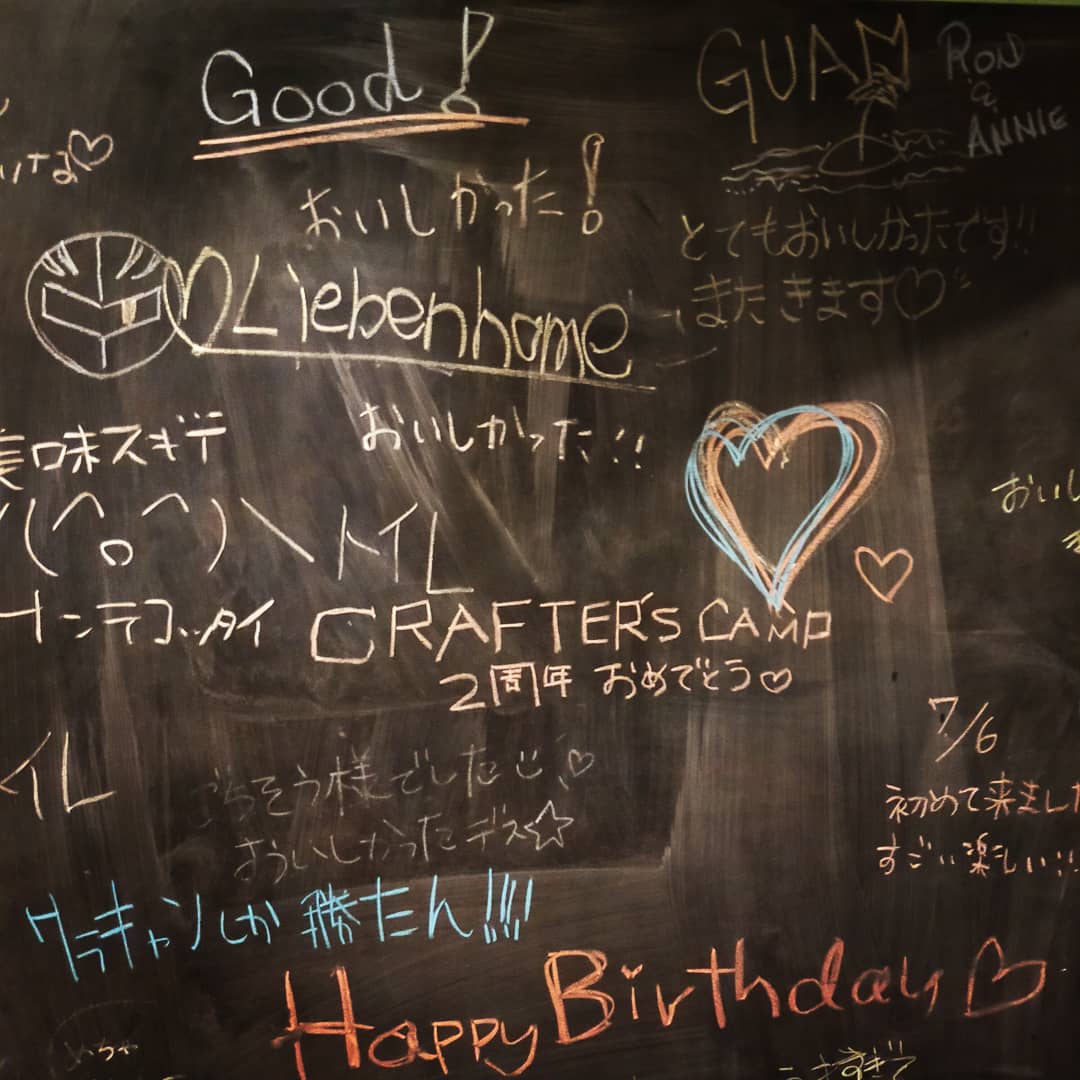 Good!
GUAM
Ron
&
ANNIE
おいしかった!
とてもおいしかったです!!
またきます♡
♡Liebenhome
美味スギテ
おいしかった!!
\(^o^)\
トイレ
CRAFTER'S CAMP
2周年 おめでとう♡
おいし
7/6
初めて来ました
すごい楽しい!!
ごちそう様でした
おういしかったデス☆
クラキャンしか勝たん!!!
Happy Birthday♡
めちゃ